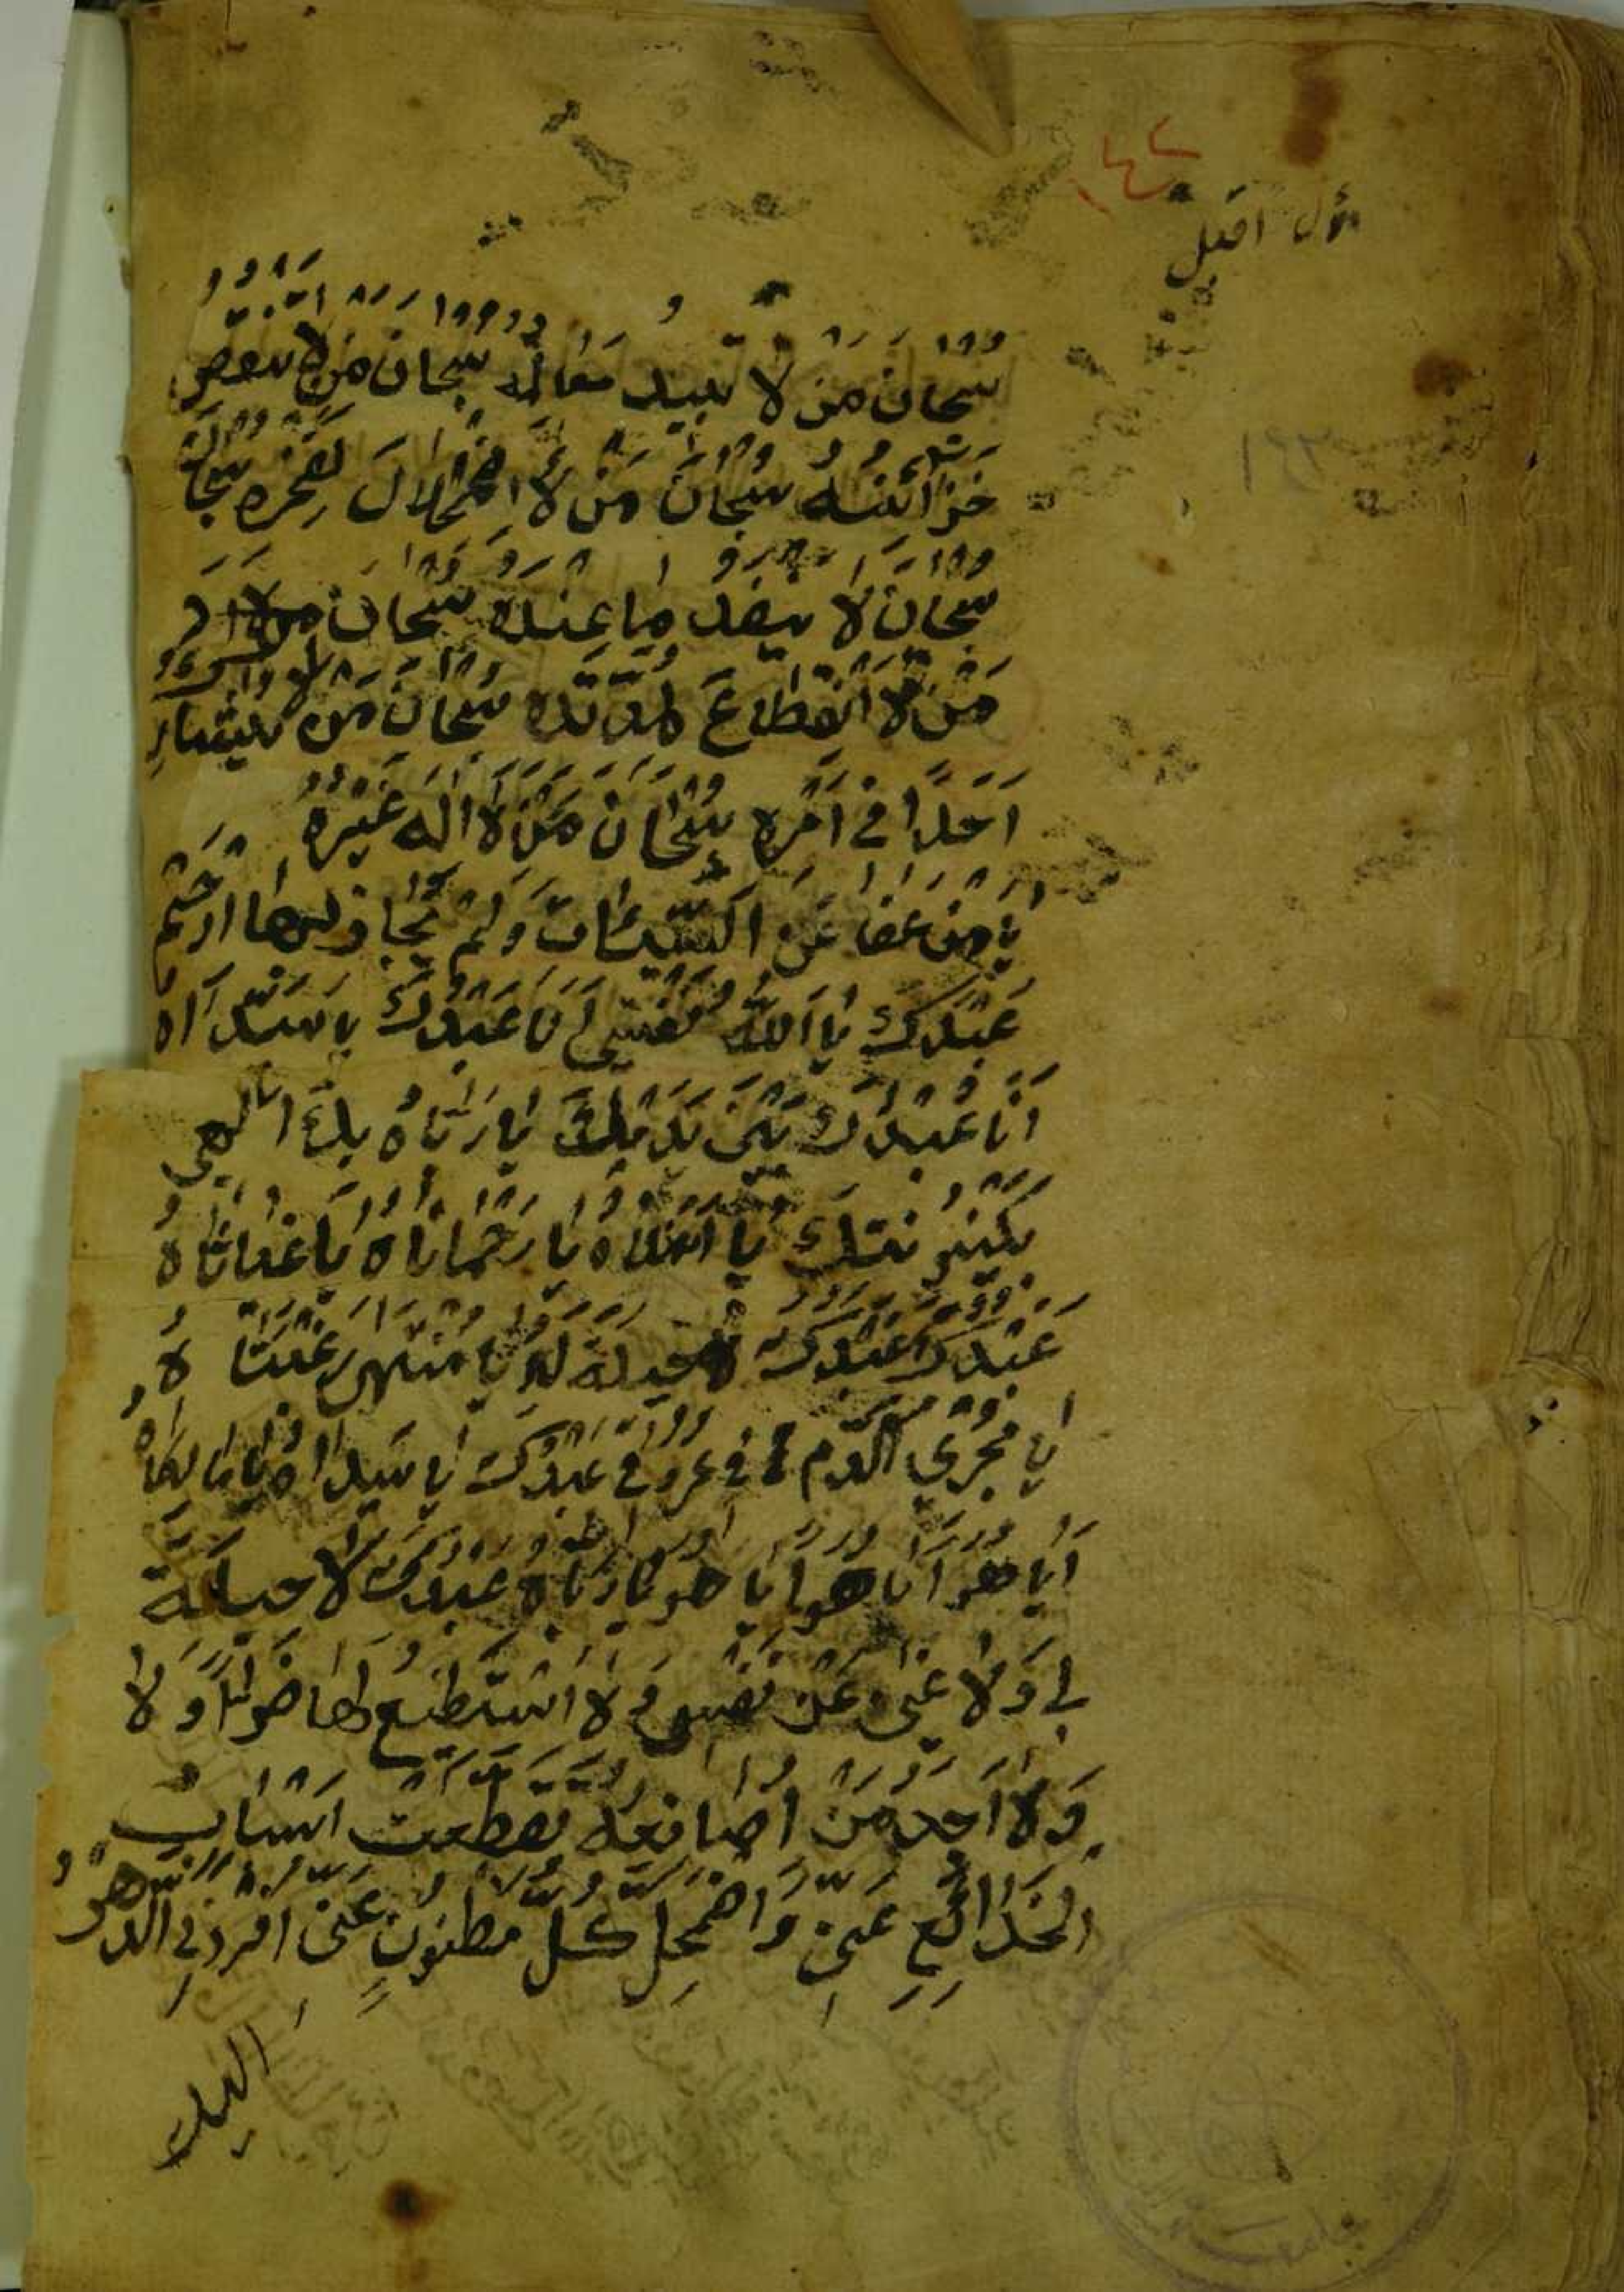 ١٤٢
سبحان من لا تبيد معالمه سبحان من لا تنقص
خزائنه سبحان من لا اضمحلال لفخره سبحان
سبحان لا ينفد ما عنده سبحان
من لا انقطاع لمدته سبحان من لا يشارك
احدا في امره سبحان من لا اله غيره
يا من عفا عن السيئات ولم يجاز بها ارحم
عبدك يا الله نفسي انا عبدك يا سيداه
انا عبدك بين يديك يا رباه بك الهي
بكينونتك يا املاه يا رحماناه يا غياثاه
عبدك عبدك لا حيلة له يا منتهى رغبتاه
يا مجري الدم في عروق عبدك يا سيداه يا مالكاه
ايا هو ايا هو ايا هو يا رباه عبدك لا حيلة
لي ولا غنى عن نفسي ولا استطيع لها ضرا ولا
ولا اجد من اصانعه تقطعت اسباب
الخدائع عني واضمحل كل مظنون عني افردني الدهر
اليك